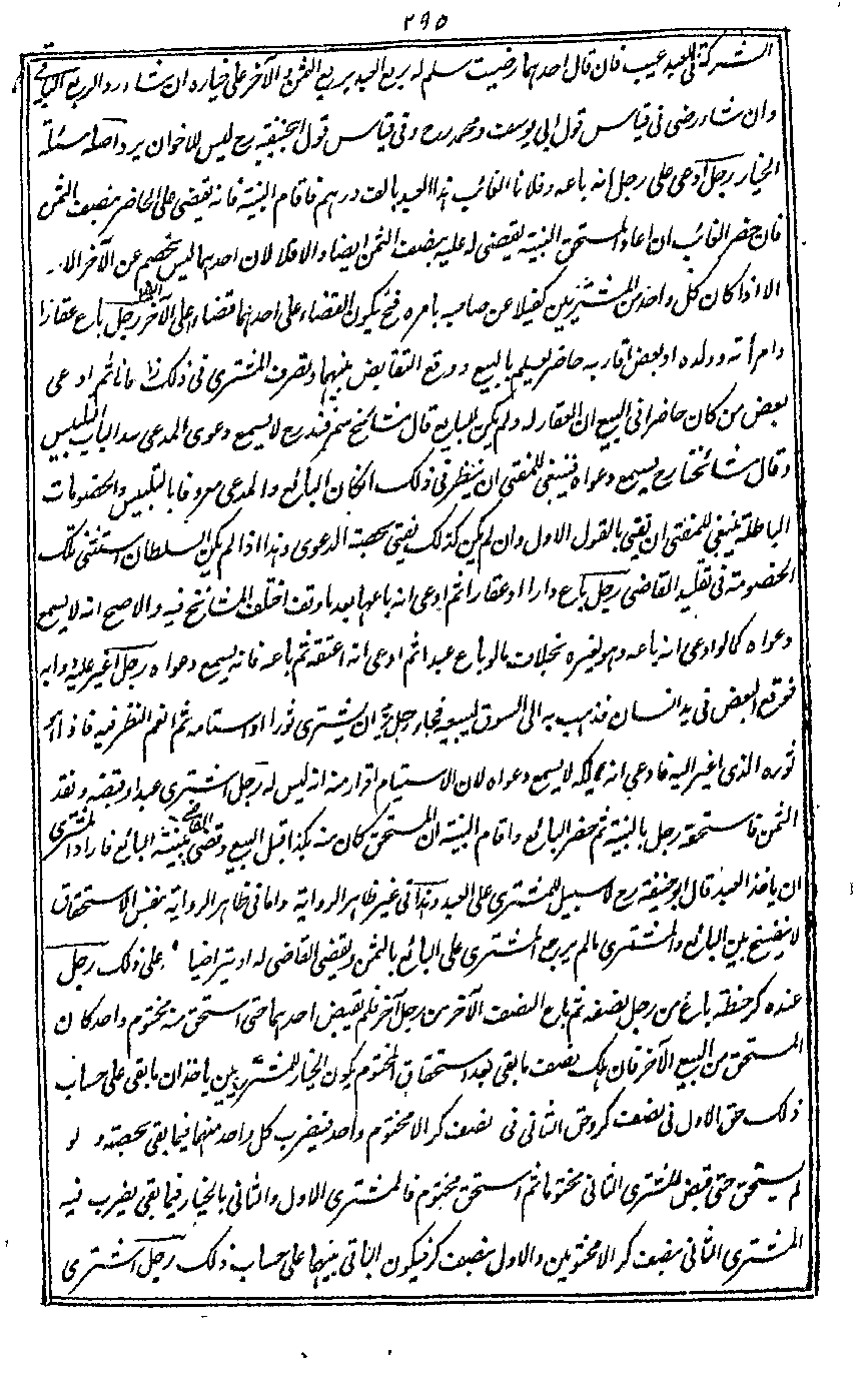 ٢٩٥
الشركة فى العبد عيب فان قال احدهما رضيت سلم له ربع العبد بربع الثمن والآخر على خياره ان شاء رد الربع الباقى
وان شاء رضى فى قياس قول ابى يوسف ومحمد رح وفى قياس قول ابيحنيفة رح ليس للآخر ان يرد اصله مسئلة
الخيار رجل ادعى على رجل انه باعه وفلانا الغائب هذا العبد بالف درهم فاقام البينة فانه يقضى على الحاضر بنصف الثمن
فان حضر الغائب ان اعاد المستحق البينة يقضى له عليه بنصف الثمن ايضا والا فلا لان احدهما ليس بخصم عن الآخر الا
الا اذا كان كل واحد من المشتريين كفيلا عن صاحبه بامره فح يكون القضاء على احدهما قضاء على الآخر ايضا رجل باع عقارا
وامرأته وولده او بعض اقاربه حاضر يعلم بالبيع ووقع التقابض بينهما وتصرف المشترى فى ذلك زمانا ثم ادعى
بعض من كان حاضرا فى البيع ان العقار له ولم يكن للبايع قال مشائخ سمرقند رح لا يسمع دعوى المدعى سدا لباب التلبيس
وقال مشائخنا رح يسمع دعواه فينبغى للمفتى ان ينظر فى ذلك ان كان البائع والمدعى معروفا بالتلبيس والخصومات
الباطلة ينبغى للمفتى ان يفتى بالقول الاول وان لم يكن كذلك يفتى بصحة الدعوى وهذا اذا لم يكن السلطان استثنى تلك
الخصومة فى تقليد القاضى رجل باع دارا او عقارا ثم ادعى انه باعها بعد ما وقف اختلف المشائخ فيه والاصح انه لا يسمع
دعواه كما لو ادعى انه باعه وهو لغيره بخلاف ما لو باع عبدا ثم ادعى انه اعتقه ثم باعه فانه يسمع دعواه رجل اغير على دوابه
فوقع البعض فى يد انسان فذهب به الى السوق ليبيعه فجاء رجل ان يشترى ثورا استامه ثم انعم النظر فيه فاذا
ثوره الذى اغير اليه فادعى انه ملكه لا يسمع دعواه لان الاستيام اقرار منه انه ليس له رجل اشترى عبدا وقبضه ونقد
الثمن فاستحقه رجل بالبينة ثم حضر البائع واقام البينة ان المستحق كان منه بكذا قبل البيع وقضى القاضى ببينة البائع فاراد المشترى
ان ياخذ العبد قال ابو حنيفة رح لا سبيل للمشترى على العبد وهذا فى غير ظاهر الرواية واما فى ظاهر الرواية بنفس الاستحقاق
لا ينفسخ بين البائع والمشترى ما لم يرجع المشترى على البائع بالثمن ويقضى القاضى له او يتراضيا على ذلك رجل
عنده كر حنطة باع من رجل نصفه ثم باع النصف الآخر من رجل آخر فلم يقبض احدهما حتى استحق منه مختوم واحد كان
المستحق من البيع الآخر فان هلك نصف ما بقى بعد استحقاق المختوم يكون الخيار للمشتريين ياخذان ما بقى على حساب
ذلك حق الاول فى نصف كر وحق الثانى فى نصف كر الا مختوم واحد فيضرب كل واحد منهما فيما بقى بحصته ولو
لم يستحق حتى قبض المشترى الثانى مختوما ثم استحق مختوم فالمشترى الاول والثانى بالخيار فيما بقى يضرب فيه
المشترى الثانى بنصف كر الا مختومين والاول بنصف كر فيكون الباقى بينهما على حساب ذلك رجل اشترى